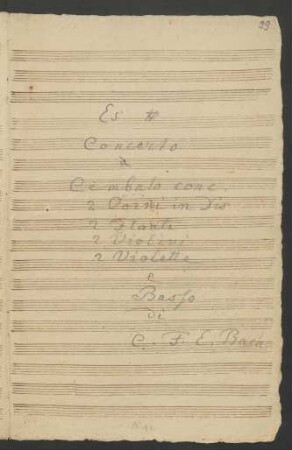 23
Es #
Concerto
a
Cembalo conc.
2 Corni in Dis
2 Flauti
2 Violini
2 Violette
e
Basso
di
C. F. E. Bach